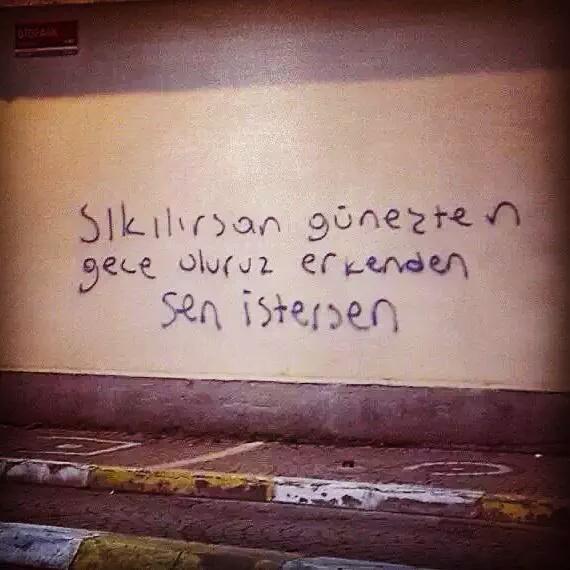 OTOPARK
sıkılırsan güneşten
gece oluruz erkenden
sen istersen